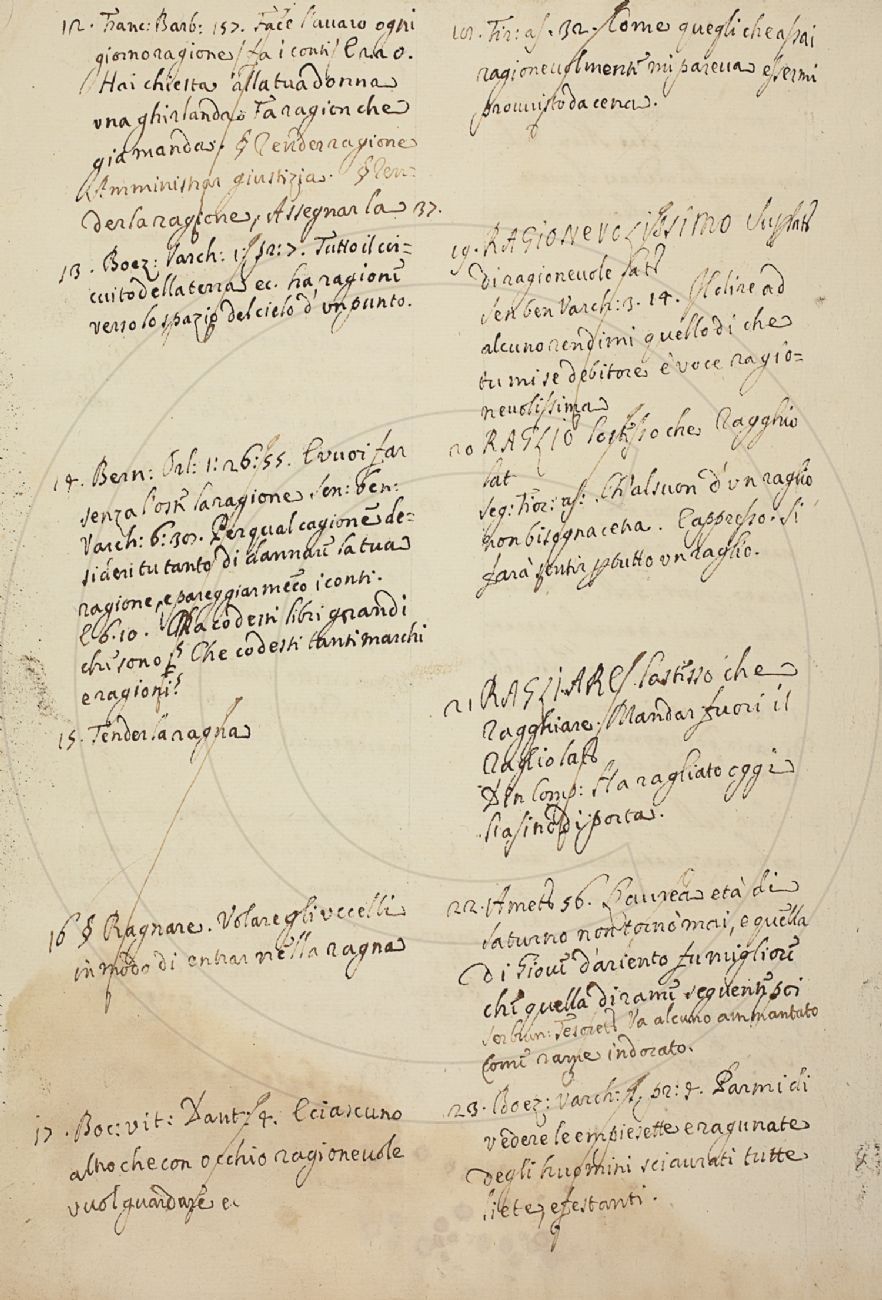 12. Franc: Barb: 157. Face l'avaro ogni
giorno ragione / fa i conti / E 220.
Hai chiesta alla tua donna
una ghirlanda: Fà ragion che
già manda. § Render ragione
Amministrar giustizia. § Ren=
der la ragione, Assegnarla 37.
13. Boez: Varch: 1: pr: 7. Tutto il cir=
cuito della terra ec. ha ragione
verso lo spazio del cielo d'un punto.
14. Bern: Orl: 1: 26: 55. E vuoi far
senza l'oste la ragione Sen: ben:
Varch: 6: 30. Per qual cagione de=
sideri tu tanto di dannare la tua
ragione, e pareggiar meco i conti.
E 6. 10. Ma codesti libri grandi
che sono? Che codesti tanti marchi
e ragioni?
15. Tender la ragna
16 § Ragnare. Volare gli uccelli
in modo di entrar nella ragna
17. Boc: vit: Dant: 4. E ciascuno
altro che con occhio ragionevole
vuol guardare ec
18. Fir: as. 32. Come quegli che assai
ragionevolmente mi pareva essermi
provvisto da cena.
19. RAGIONEVOLISSIMO Superlat
di ragionevole lat
Sen ben Varch: 3. 14. Il dire ad
alcuno rendimi quello di che
tu mi se debitore è voce ragio=
nevolissima
20 RAGLIO lo stesso che Ragghio
lat
Seg: Fior: as: Ch'al suon d'un raglio
non bisogna cetra. E appresso. Si
farà sentir p tutto un raglio.
21 RAGLIARE lo stesso che
Ragghiare. Mandar fuori il
Raglio lat
Din Comp: Ha ragliato oggi
l'asino di porta.
22. Amet 56. L'aurea età di
Saturno non tornò mai, e quella
di Giove d'ariento fu migliore
che quella di rame seguente poi
Ser Brun: Tesoret Va alcuno ammantato
Come rame indorato.
23. Boez: Varch: 1. pr: 4. Parmi di
vedere le empie sette e ragunate
degli huomini sciaurati tutte
liete, e festanti.